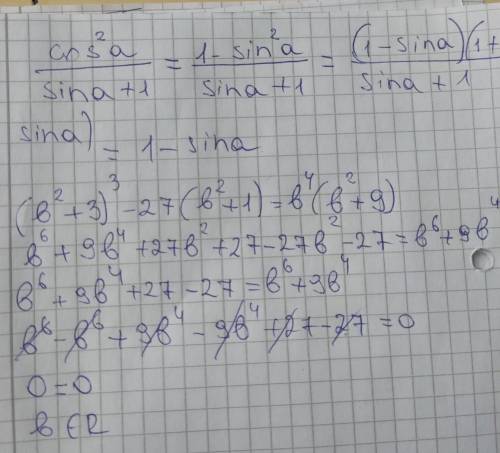 cos²a / sina+1 = 1-sin²a / sina+1 = (1-sina)(1+ / sina+1
sina) = 1-sina
(в²+3)³-27(в²+1)=в⁴(в²+9)
в⁶+9в⁴+27в²+27-27в²-27=в⁶+9в⁴
в⁶+9в⁴+27-27=в⁶+9в⁴
в⁶-в⁶+9в⁴-9в⁴+27-27=0
0=0
в∈R